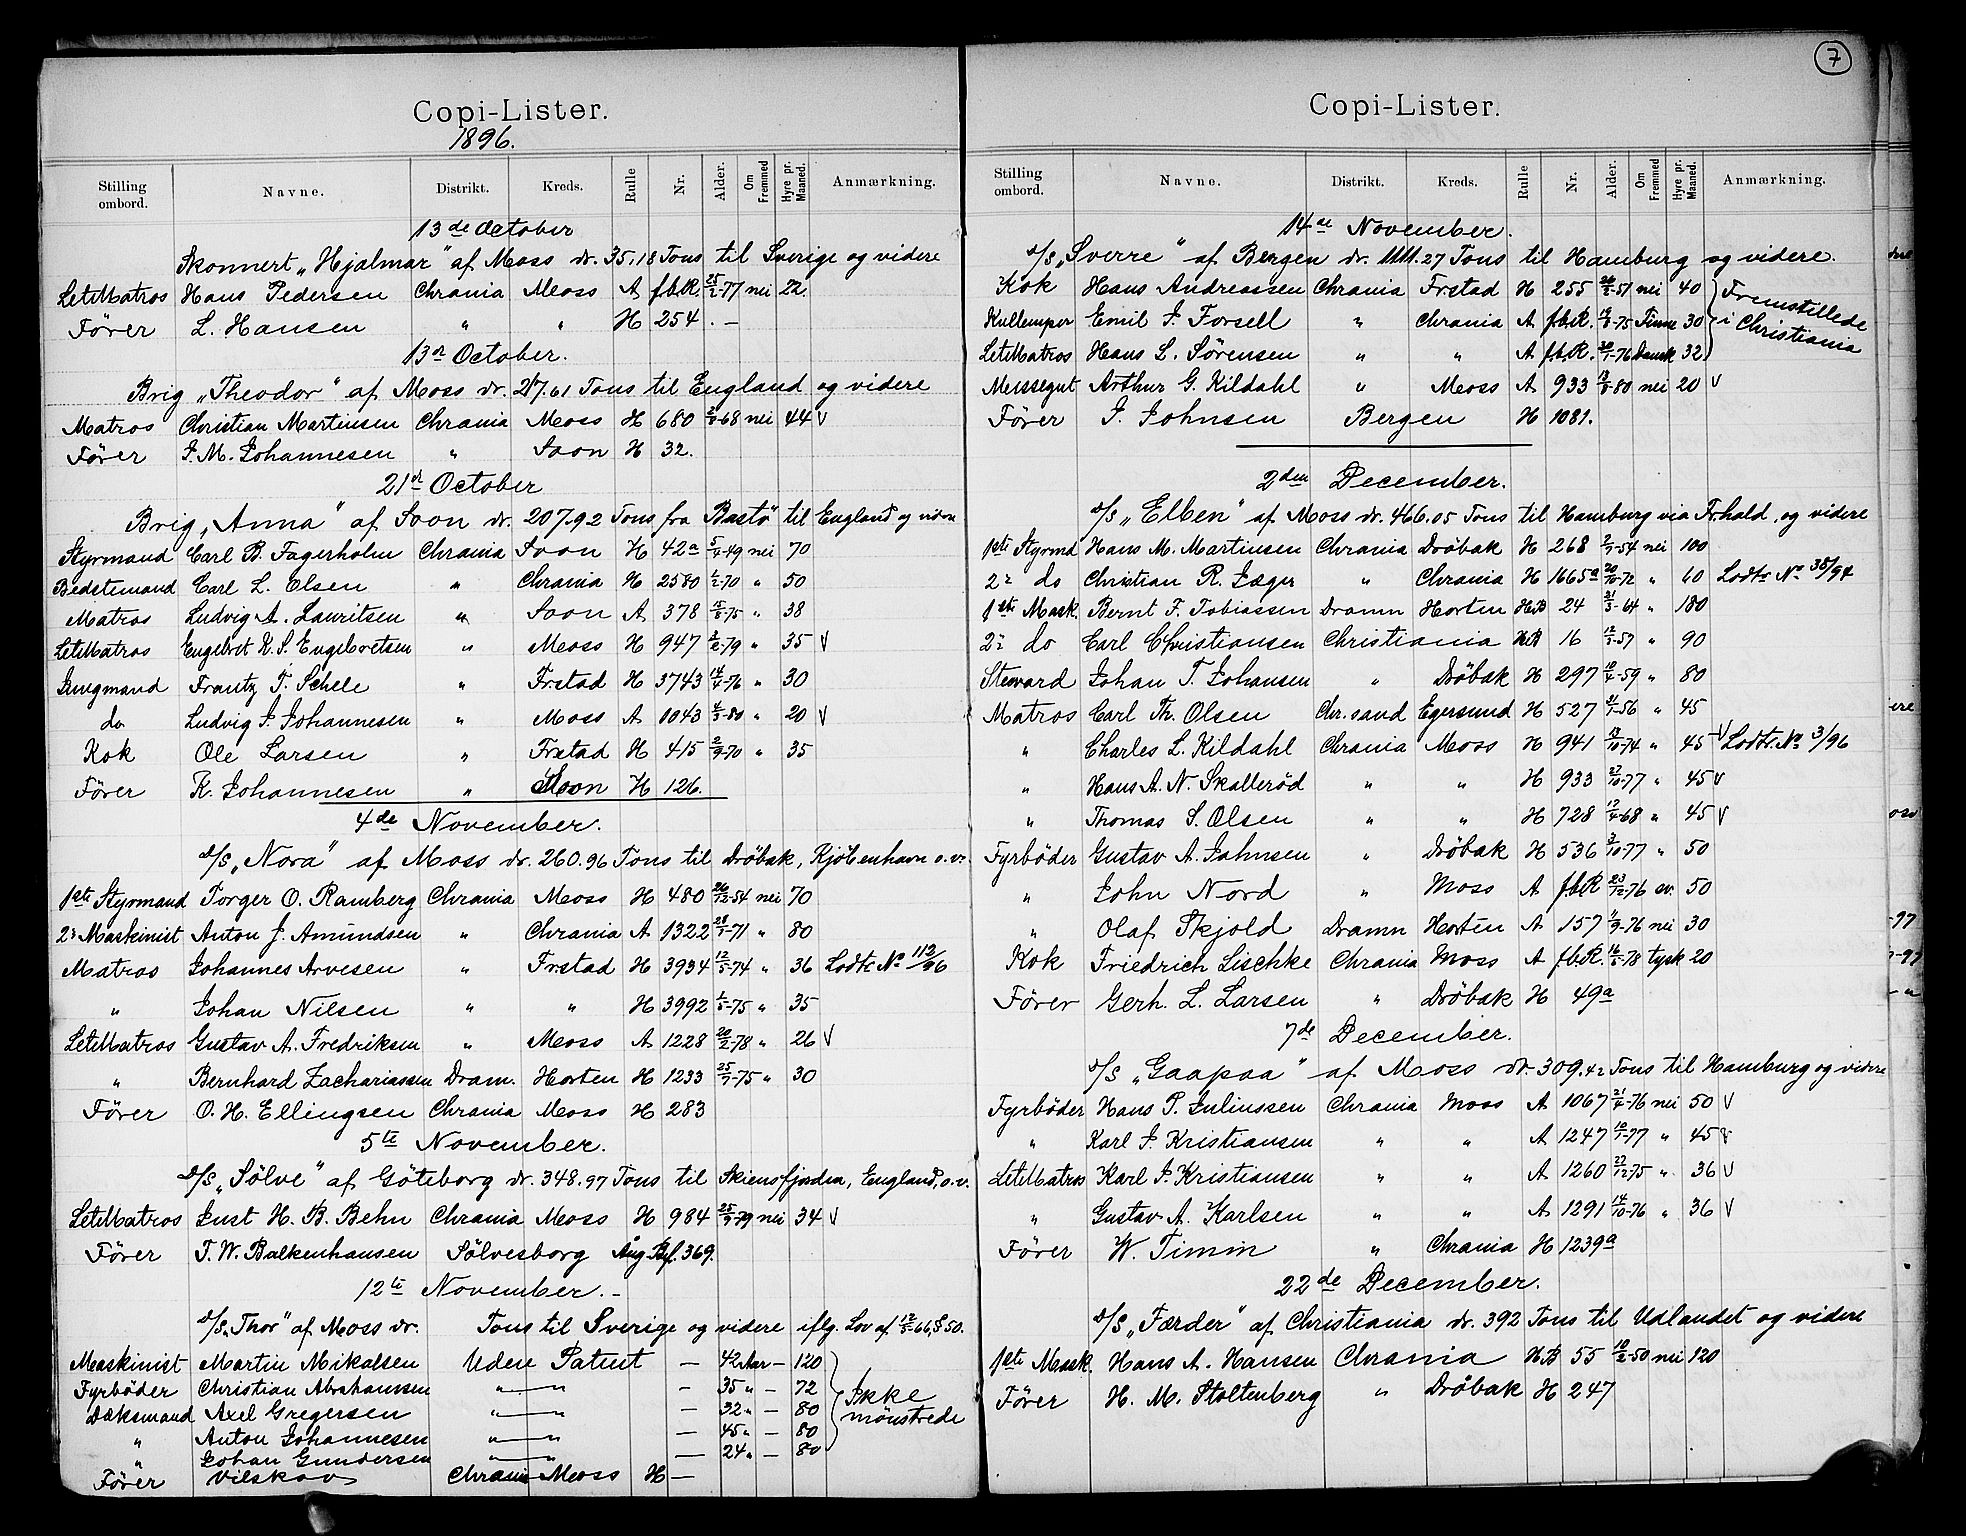 Copi-Lister.
1896.
Stilling ombord. Navne. Distrikt. Kreds. Rulle Nr. Alder. Om Fremmed Hyre pr. Maaned. Anmærkning.
13de October
Skonnert „Hjalmar" af Moss dr. 35,18 Tons til Sverige og videre
LetMatros Hans Pedersen Chrania Moss A f.b.R. 25/2-77 nei 22.
Förer L. Hansen „ „ H 254. —
13de October.
Brig „Theodor" af Moss dr. 217.61 Tons til England og videre
Matros Christian Martinsen Chrania Moss H 680 -68 nei 44 V
Förer J. M. Johannesen „ Soon H 32.
21st October
Brig „Anna" af Soon dr. 207.92 Tons fra Bastö til England og videre
Styrmand Carl B. Fagerholm Chrania Soon H 42a 5/4-49 nei 70
Bedstemand Carl L. Olsen „ Chrania H 2580 1/2-70 „ 50
Matros Ludvig A. Lauritsen „ Soon A 378 -75 „ 38
LetMatros Engelbret K. S. Engebretsen „ Moss H 947 2/2-79 „ 35 V
Jungmand Frantz T. Schele „ Frstad H 3743 14/4-76 „ 30
do Ludvig J. Johannesen „ Moss A 1043 -80 „ 20 V
Kok Ole Larsen „ Frstad H 415 2/9-70 „ 35
Förer K. Johannesen „ Soon H 126.
4de November.
D/S „Nora" af Moss dr. 260.96 Tons til Dröbak, Kjöbenhavn o.v.
1ste Styrmand Torger O. Ramberg Chrania Moss H 480 26/12-54 nei 70
2n Maskinist Anton J. Amundsen „ Chrania A 1322 28/1-71 „ 80
Matros Johannes Arvesen „ Frstad H 3934 12/5-74 „ 36 Lodts No 113/96
„ Johan Nilsen „ „ H 3992 1/5-75 „ 35
LetMatros Gustav A. Fredriksen „ Moss A 1228 20/2-78 „ 26 V
„ Bernhard Zachariassen Dram. Horten H 1233 25/7-75 „ 30
Förer O. H. Ellingsen Chrania Moss H 283
5te November.
D/S „Sölve" af Göteborg dr. 348.97 Tons til Skiensfjorden, England, o.v.
LetMatros Just H. B. Behn Chrania Moss H 984 25/9-79 nei 34 V
Förer T. W. Balkenhausen Sölvesborg Ång. Bf. 369.
12te November. -
D/S „Thor" af Moss dr. Tons til Sverige og videre iflg. Lov af 12/5-66, § 50.
Maskinist Martin Mikalsen Uden Patent — 42 Aar — 120
Fyrböder Christian Abrahamsen „ — „ — 35 „ — 72 Ikke
Dæksmand Axel Gregersen „ — „ — 32 „ — 80 mönstrede
„ Anton Johannesen „ — „ — 45 „ — 80
„ Johan Gundersen „ — „ — 24 „ — 80
Förer Vilskov Chrania Moss H —
7
Copi-Lister.
Stilling ombord. Navne. Distrikt. Kreds. Rulle Nr. Alder. Om Fremmed Hyre pr. Maaned. Anmærkning.
14de November.
D/S „Sverre" af Bergen dr. 1111.27 Tons til Hamburg og videre.
Kok Hans Andreassen Chrania Frstad H 255 -51 nei 40 Fremstillede
Kullemper Emil J. Forsell „ Chrania A f.b.R. -75 Finne 30 i Christiania
LetMatros Hans L. Sörensen „ „ A f.b.R. -76 Dansk 32
Messegut Arthur G. Kildahl „ Moss A 933 -80 nei 20 V
Förer J. Johnsen Bergen H 1081.
2den December.
D/S „Elben" af Moss dr. 466.05 Tons til Hamburg via Fr.hald, og videre
1ste Styrmd Hans M. Martinsen Chrania Dröbak H 268 -54 nei 100
2n do Christian R. Jæger „ Chrania H 1665a 20/10-72 „ 60 Lodts No 35/94
1ste Mask. Bernt F. Tobiassen Dramn Horten H.B 24 21/3-64 „ 180
2n do Carl Christiansen Christiania H.B 16 -57 „ 90
Steward Johan T. Johansen „ Dröbak H 297 -59 „ 80
Matros Carl Th. Olsen Chr.sand Egersund H 527 -56 „ 45
„ Charles L. Kildahl Chrania Moss H 941 -74 „ 45 V Lodts No 3/96
„ Hans A. N. Skalleröd „ „ H 933 27/10-77 „ 45 V
„ Thomas S. Olsen „ „ H 728 -68 „ 45 V
Fyrböder Gustav A. Johnsen „ Dröbak H 536 3/10-77 „ 50
„ John Nord „ Moss A f.b.R 23/12-76 sv. 50
„ Olaf Skjold Dramn Horten A 157 -76 nei 30
Kok Friedrich Lischke Chrania Moss A f.b.R. -78 tysk 20
Förer Gerh. L. Larsen „ Dröbak H 49a
7de December.
D/S „Gaapaa" af Moss dr. 309.42 Tons til Hamburg og videre
Fyrböder Hans P. Juliussen Chrania Moss A 1067 21/4-76 nei 50 V
„ Karl J. Kristiansen „ „ A 1247 -77 „ 45 V
LetMatros Karl J. Kristiansen „ „ A 1260 27/12-75 „ 36 V
„ Gustav A. Karlsen „ „ A 1291 14/10-76 „ 36 V
Förer W. Timm „ Chrania H 1239a
22de December.
D/S „Færder" af Christiania dr. 392 Tons til Udlandet og videre
1ste Mask. Hans A. Hansen Chrania H.B 55 -50 nei 120
Förer H. M. Stoltenberg „ Dröbak H 247